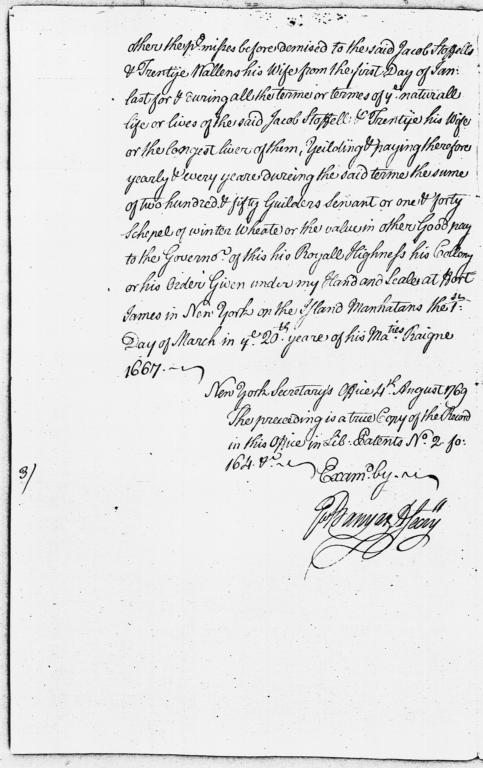 other the pr.misses before demised to the said Jacob Stoffells
& Trentije Wallens his Wife from the first Day of Jan:
last for & during all the terme or termes of ye. naturiall
life or lives of the said Jacob Stoffell: & Trentije his Wife
or the longest liver of them, Yeilding & paying therefore
yearly & every yeare dureing the said terme the sume
of two hundred & fifty Guilders Sevant or one & forty
Schepel of winter Wheate or the value in other Good pay
to the Governor. of this his Royall Highness his Collony
or his Order Given under my Hand and Seale at Fort
James in New York on the Island Manhatans the 1st.
Day of March in ye. 20th yeare of his Maties. Raigne
1667.
New York Secretary's Office 4th. August 1769
The preceding is a true Copy of the Record
in this Office in Lib. Patents No. 2 fo:
164 &c.
Examd. by
Gw Banyar D Secry
3)